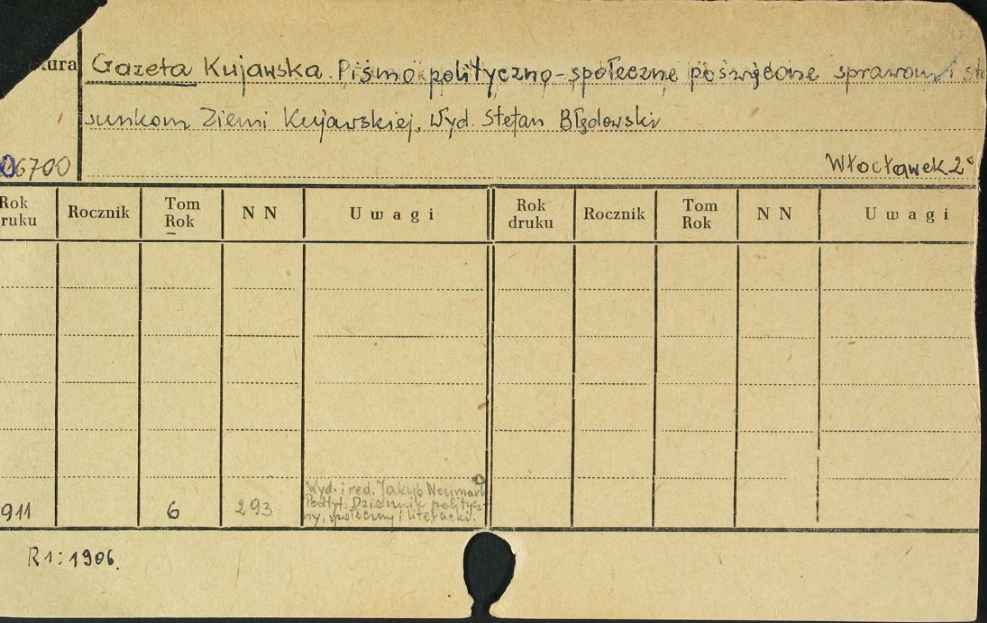 tura Gazeta Kujawska. Pismo polityczno-społeczne poświęcone sprawom i sto
sunkom Ziemi Kujawskiej. Wyd. Stefan Błędowski
06700 Włocławek 2°
Rok druku Rocznik Tom Rok N N Uwagi Rok druku Rocznik Tom Rok N N Uwagi
911 6 293 Wyd. i red. Jakub Neumark
Podtyt. Dziennik politycz-
ny, społeczny i literacki.
R1: 1906.